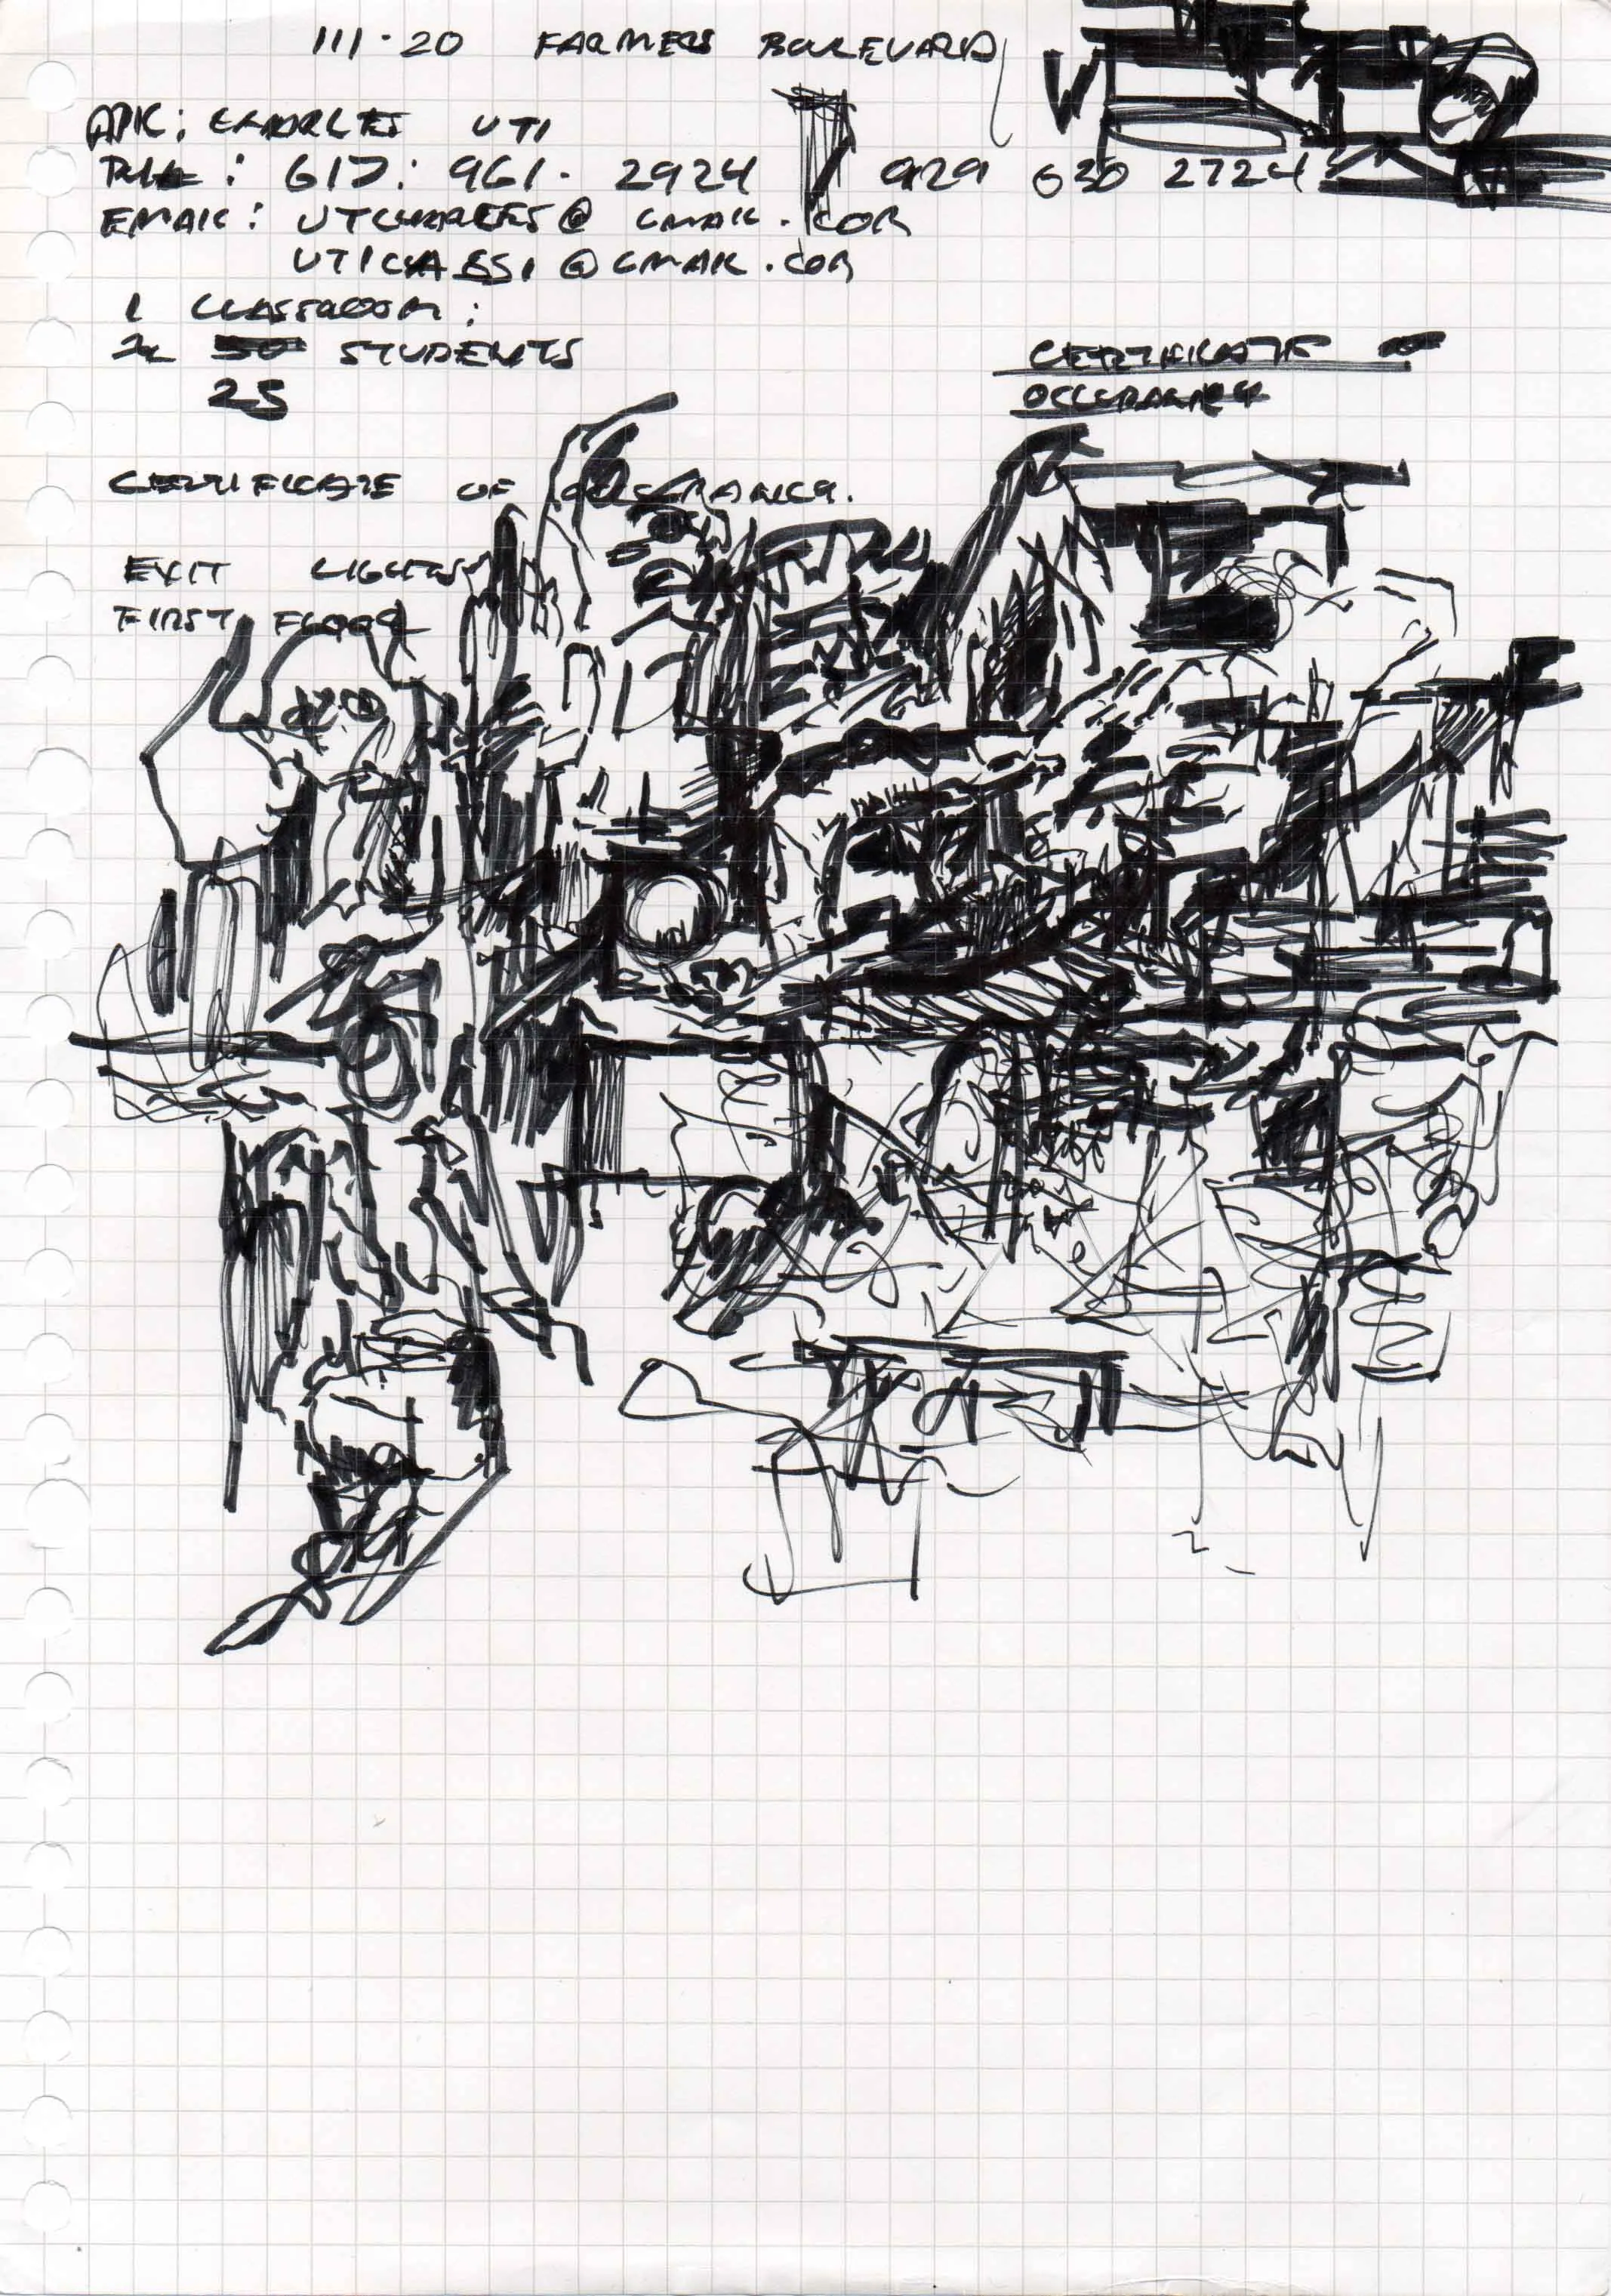 111-20 FARMERS BOULEVARD
: CHARLES UTI
: 617: 961. 2924 / 929 630 2724
EMAIL: @ GMAIL.COM
@ GMAIL.COM
1 CLASSROOM:
STUDENTS
25
CERTIFICATE OF
OCCUPANCY
CERTIFICATE OF OCCUPANCY.
EXIT LIGHTS
FIRST FLOOR